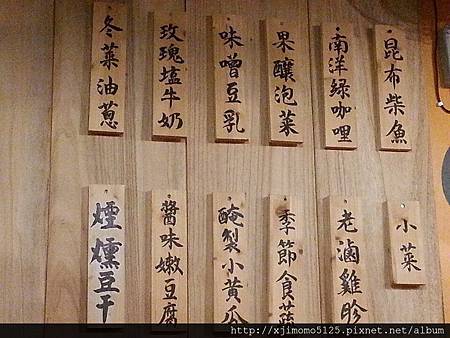 昆布柴魚
南洋綠咖哩
果釀泡菜
味噌豆乳
玫瑰塩牛奶
冬菜油蔥
小菜
老滷雞胗
季節食蔬
醃製小黃瓜
醬味嫩豆腐
煙燻豆干
http://xjimomo5125.pixnet.net/album